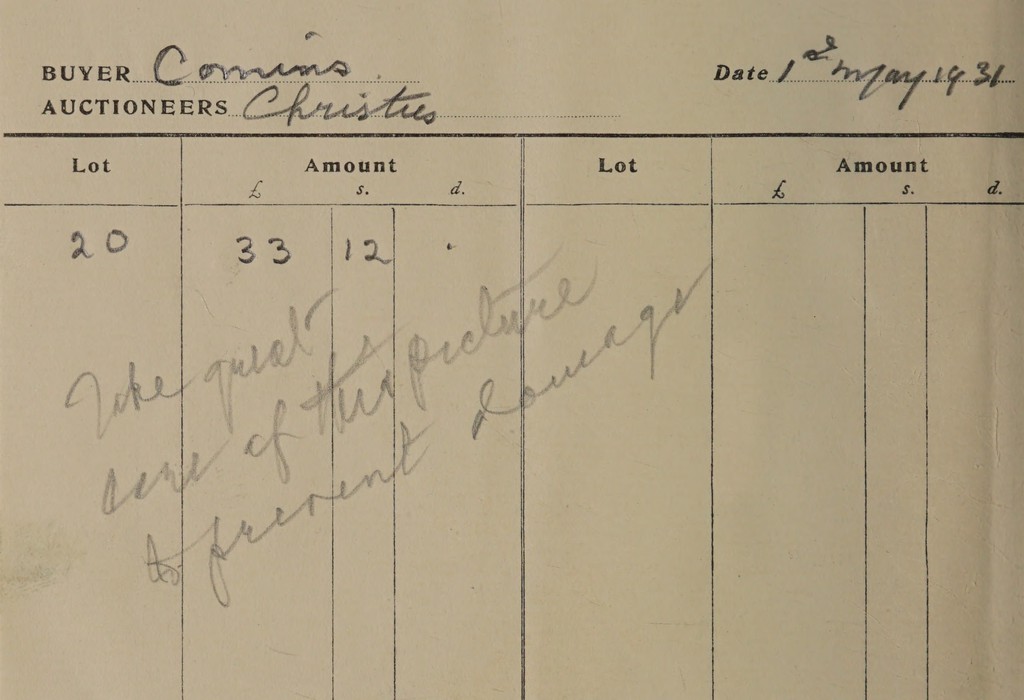 BUYER Comins. Date 1st May 1931
AUCTIONEERS Christies
Lot Amount Lot Amount
£ s. d. £ s. d.
20 33 12 .
Take great
care of this picture
to prevent damage